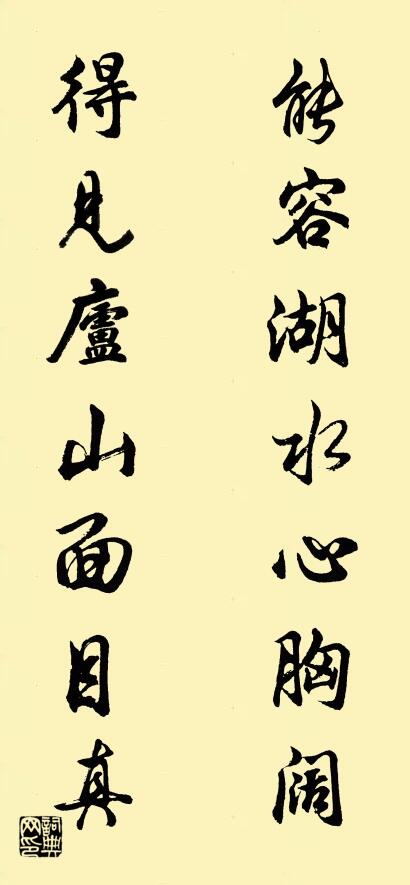 能容湖水心胸阔
得见廬山面目真
詞典网印